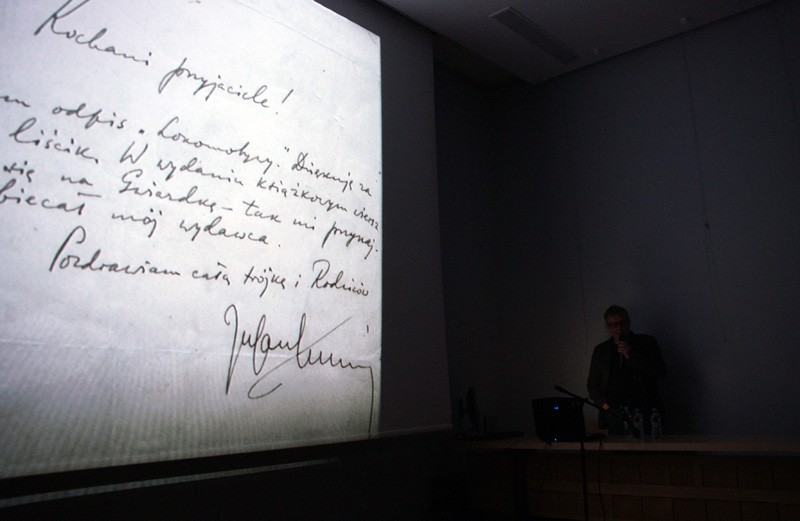 Kochani przyjaciele!
m odpis „Lokomotywy". Dziękuję za
liścik. W wydaniu książkowym wiersz
się na Gwiazdkę – tak mi przynaj-
biecał mój wydawca.
Pozdrawiam całą trójkę i Rodziców
Julian Tuwim